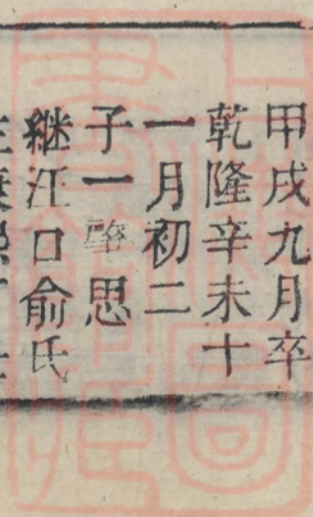 甲戌九月卒
乾隆辛未十
一月初二
子一肇思
继江口俞氏